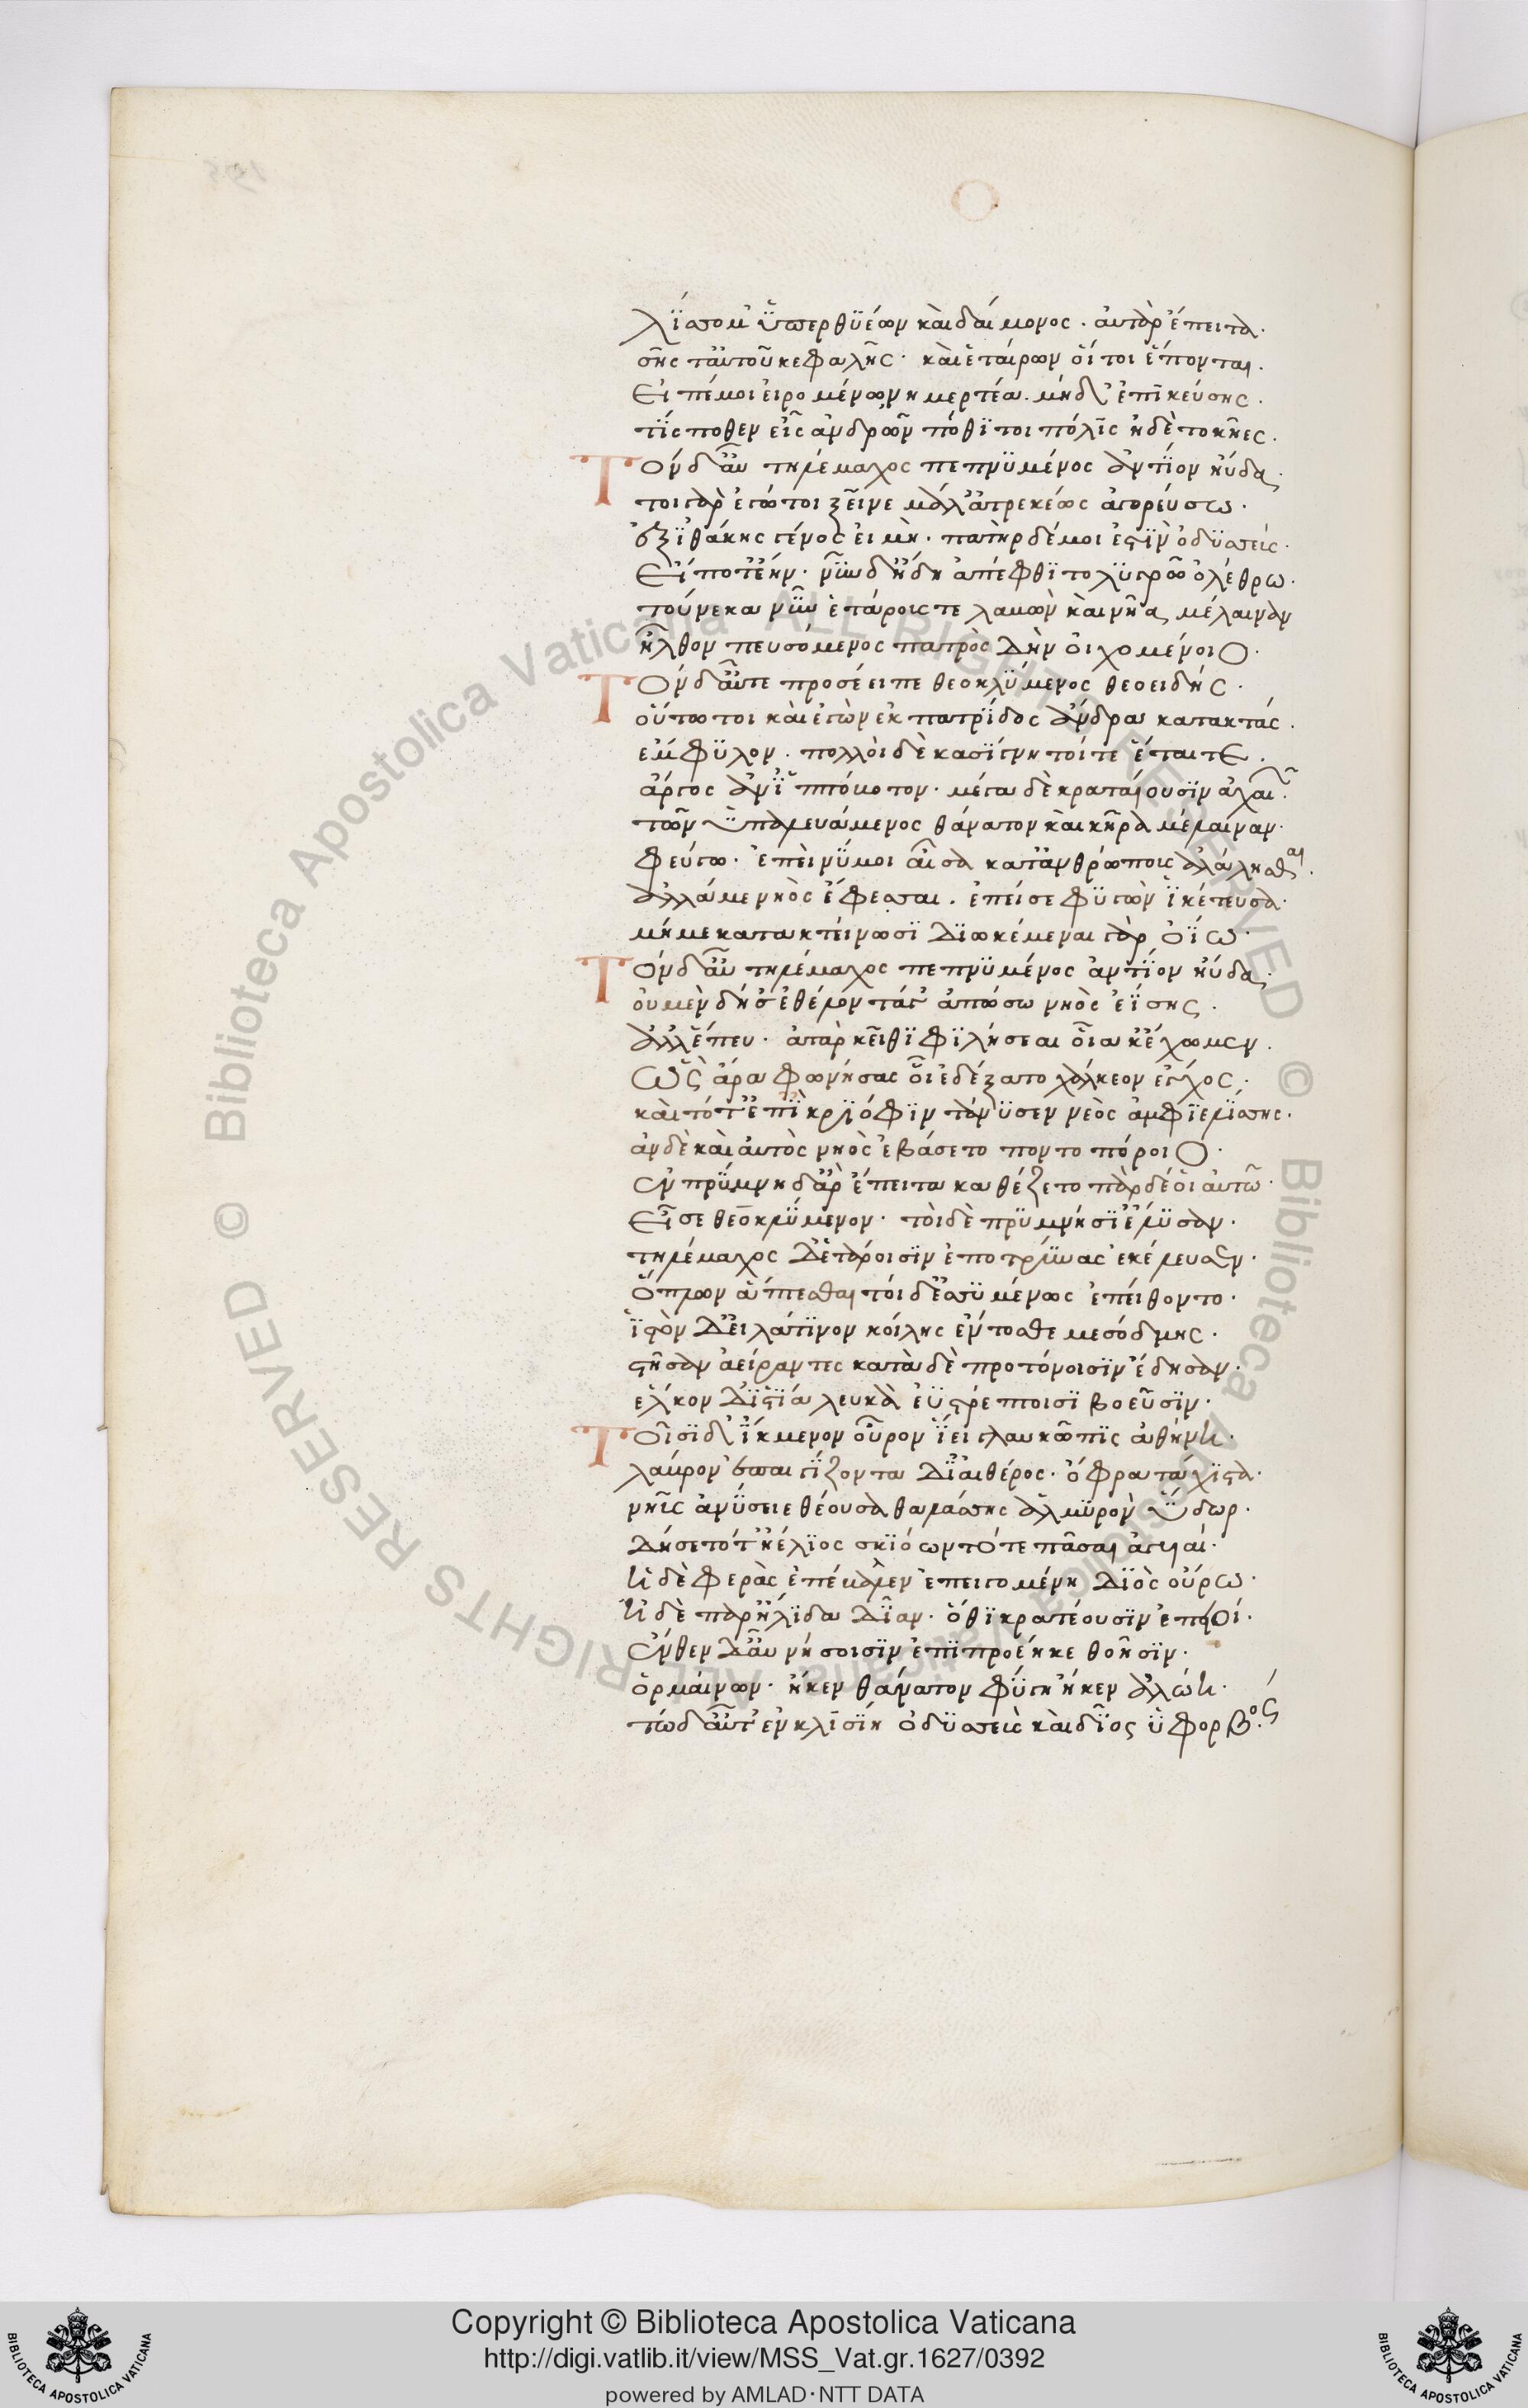 Ο
λίσσομ' ὑπερ θυέων καὶ δαίμονος. αὐτὰρ ἔπειτα.
σῆς τ' αὐτοῦ κεφαλῆς. καὶ ἑταίρων οἵ τοι ἕπονται.
Εἰπέ μοι εἰρομένω νημερτέα. μὴ δ' ἐπικεύσης.
τίς ποθεν εἰς ἀνδρῶν πόθι τοι πόλις ἠδὲ τοκῆες.
Τὸν δ' αὖ τηλέμαχος πεπνυμένος ἀντίον ηὔδα.
τοιγὰρ ἐγώ τοι ξεῖνε μάλ' ἀτρεκέως ἀγορεύσω.
ἐξ ἰθάκης γένος εἰμὴ. πατὴρ δέ μοι ἐστὶν ὀδυσσεύς.
Εἴ ποτ' ἔην. νῦν δ' ἤδη ἀπέφθιτο λυγρῶ ὀλέθρω.
τούνεκα νῦν ἑτάρους τε λαβὼν καὶ νῆα μέλαιναν
ἦλθον πευσόμενος πατρὸς δὴν οἰχομένοιο.
Τὸν δ' αὖτε προσέειπε θεοκλύμενος θεοειδής.
οὕτω τοι καὶ ἐγὼν ἐκ πατρίδος ἄνδρα κατακτάς.
ἔμφυλον. πολλοὶ δὲ κασίγνητοί τε ἔται τε.
ἄργος ἀν' ἱππόβοτον. μέγα δὲ κραταίουσιν ἀχαιῶν.
τῶν ὑπαλευάμενος θάνατον καὶ κῆρα μέλαιναν.
φεύγω. ἐπεὶ νύ μοι αἶσα κατ' ἀνθρώποις ἀλάλησθαι.
ἀλλά με νηὸς ἔφεσσαι. ἐπεί σε φυγὼν ἱκέτευσα.
μή με κατακτείνωσι διωκέμεναι γὰρ ὀΐω.
Τὸν δ' αὖ τηλέμαχος πεπνυμένος ἀντίον ηὔδα.
οὐ μὲν δή σ' ἐθέλοντά γ' ἀπώσω νηὸς ἐΐσης.
ἀλλ' ἕπευ. αὐτὰρ κεῖθι φιλήσεαι οἷά κ' ἔχωμεν.
Ὣς ἄρα φωνήσας οἷ ἐδέξατο χάλκεον ἔγχος.
καὶ τό γ' ἐπ' ἰκριόφιν τάνυσεν νεὸς ἀμφιελίσσης.
ἂν δὲ καὶ αὐτὸς νηὸς ἐβάσετο ποντοπόροιο.
ἐν πρύμνη δ' ἄρ' ἔπειτα καθέζετο πὰρ δέ οἱ αὐτῶ.
Εἷσε θεοκλύμενον. τοὶ δὲ πρυμνήσι' ἔλυσαν.
τηλέμαχος δ' ἑτάροισιν ἐποτρύνας ἐκέλευσεν.
ὅπλων ἅπτεσθαι τοὶ δ' ἐσσυμένως ἐπείθοντο.
ἱστὸν δ' εἰλάτινον κοίλης ἔντοσθε μεσόδμης.
στῆσαν ἀείραντες κατὰ δὲ προτόνοισιν ἔδησαν.
ἕλκον δ' ἱστία λευκὰ ἐϋστρέπτοισι βοεῦσιν.
Τοῖσι δ' ἴκμενον οὖρον ἵει γλαυκῶπις ἀθήνη.
λάβρον ἐπαιγίζοντα δι' αἰθέρος. ὄφρα τάχιστα.
νηῦς ἀνύσειε θέουσα θαλάσσης ἁλμυρὸν ὕδωρ.
δύσετό τ' ἠέλιος σκιόωντό τε πᾶσαι ἀγυιαί.
ἡ δὲ φερὰς ἐπέβαλεν ἐπειγομένη διὸς οὔρω.
ἡ δὲ παρ' ἤλιδα δῖαν. ὅθι κρατέουσιν ἐπειοί.
ἔνθεν δ' αὖ νήσοισιν ἐπιπροέηκε θοῆσιν.
ὁρμαίνων. ἤ κεν θάνατον φύγη ἤ κεν ἁλώη.
τὼ δ' αὖτ' ἐν κλισίη ὀδυσσεὺς καὶ δῖος ὑφορβός.
Copyright © Biblioteca Apostolica Vaticana
http://digi.vatlib.it/view/MSS_Vat.gr.1627/0392
powered by AMLAD·NTT DATA
BIBLIOTECA APOSTOLICA VATICANA
BIBLIOTECA APOSTOLICA VATICANA
Biblioteca Apostolica Vaticana ALL RIGHTS RESERVED ©
Biblioteca Apostolica Vaticana ALL RIGHTS RESERVED ©